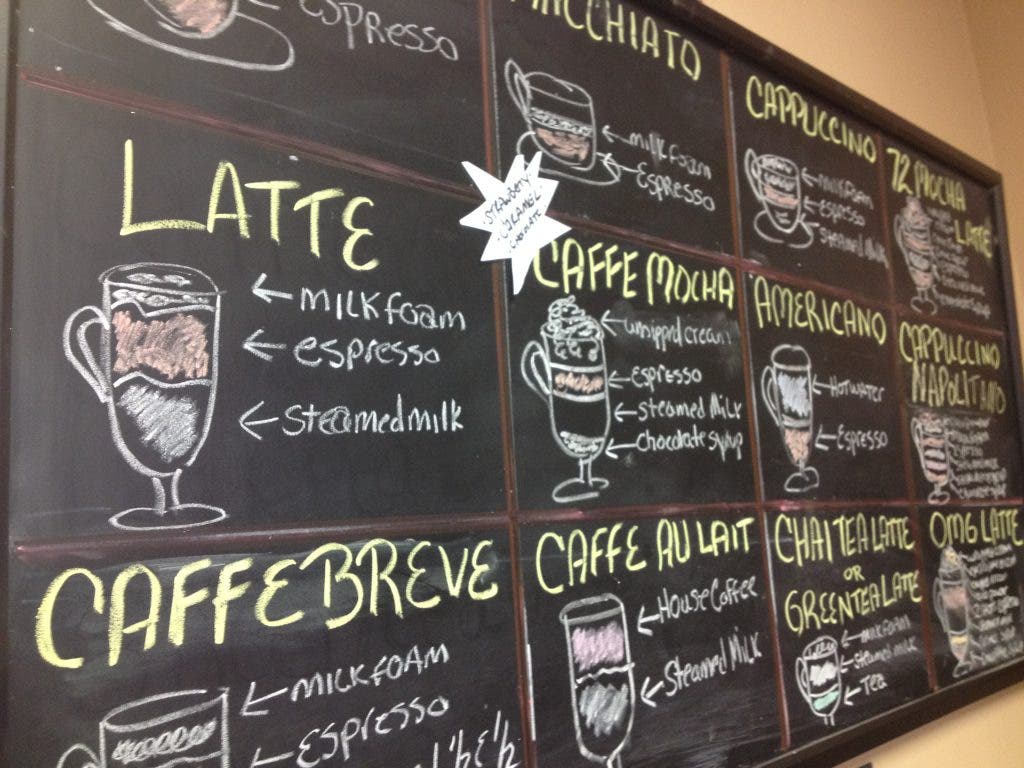 ESPRESSO
MACCHIATO
milk foam
Espresso
CAPPUCCINO
milk foam
espresso
steamed milk
72 MOCHA
LATTE
LATTE
milk foam
espresso
steamed milk
STRAWBERRY
CARAMEL
CHOCOLATE
CAFFE MOCHA
whipped cream
Espresso
steamed milk
chocolate syrup
AMERICANO
Hot water
Espresso
CAPPUCCINO
NAPOLITANO
CAFFE BREVE
milk foam
Espresso
CAFFE AU LAIT
House Coffee
Steamed Milk
CHAI TEA LATTE
OR
GREEN TEA LATTE
milk foam
steamed milk
Tea
OMG LATTE